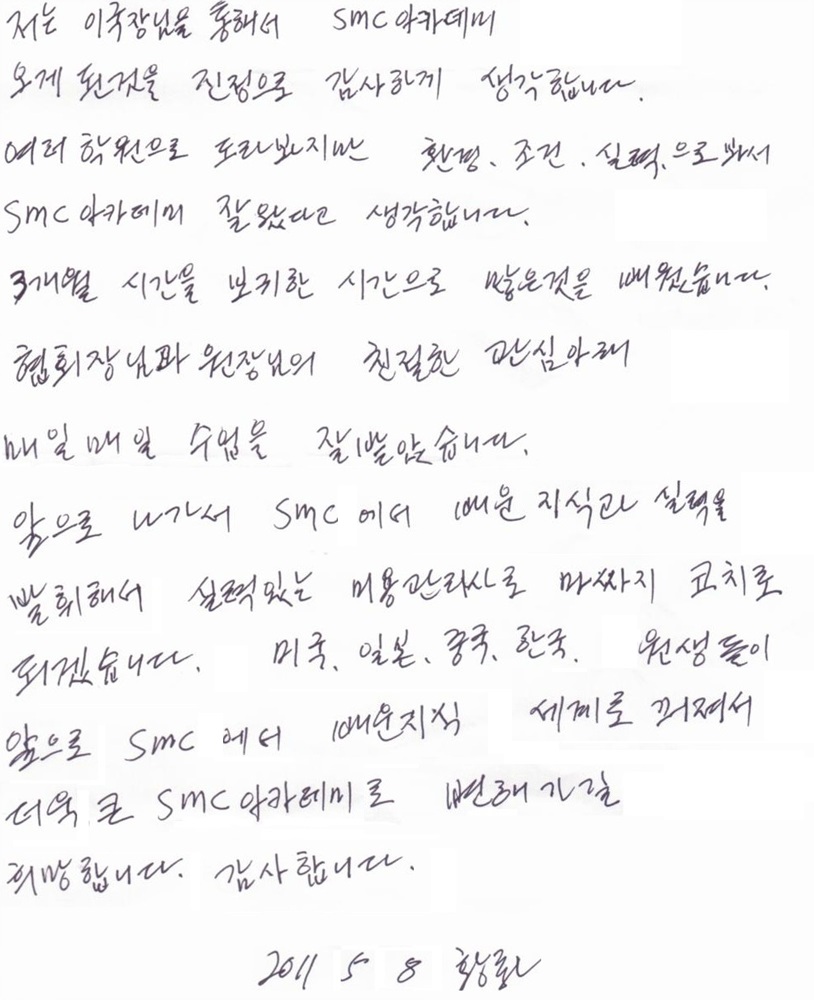 저는 이국장님을 통해서 SMC 아카데미
오게 된것을 진정으로 감사하게 생각합니다.
여러 학원으로 도라보지만 환경、조건、실력、으로 봐서
SMC 아카데미 잘 왔다고 생각합니다.
3개월 시간을 보귀한 시간으로 많은것을 배웠습니다.
협회장님과 원장님의 친절한 관심아래
매일매일 수업을 잘 받았습니다.
앞으로 나가서 SMC 에서 배운 지식과 실력을
발휘해서 실력있는 미용관리사로 마싸지 코치로
되겠습니다. 미국、일본、중국、한국、 원생들이
앞으로 SMC 에서 배운지식 세계로 퍼져서
더욱 큰 SMC 아카데미로 변해가길
희망합니다. 감사합니다.
2011 5 8